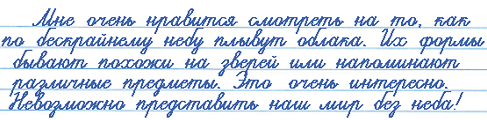 Мне очень нравится смотреть на то, как
по бескрайнему небу плывут облака. Их формы
бывают похожи на зверей или напоминают
различные предметы. Это очень интересно.
Невозможно представить наш мир без неба!